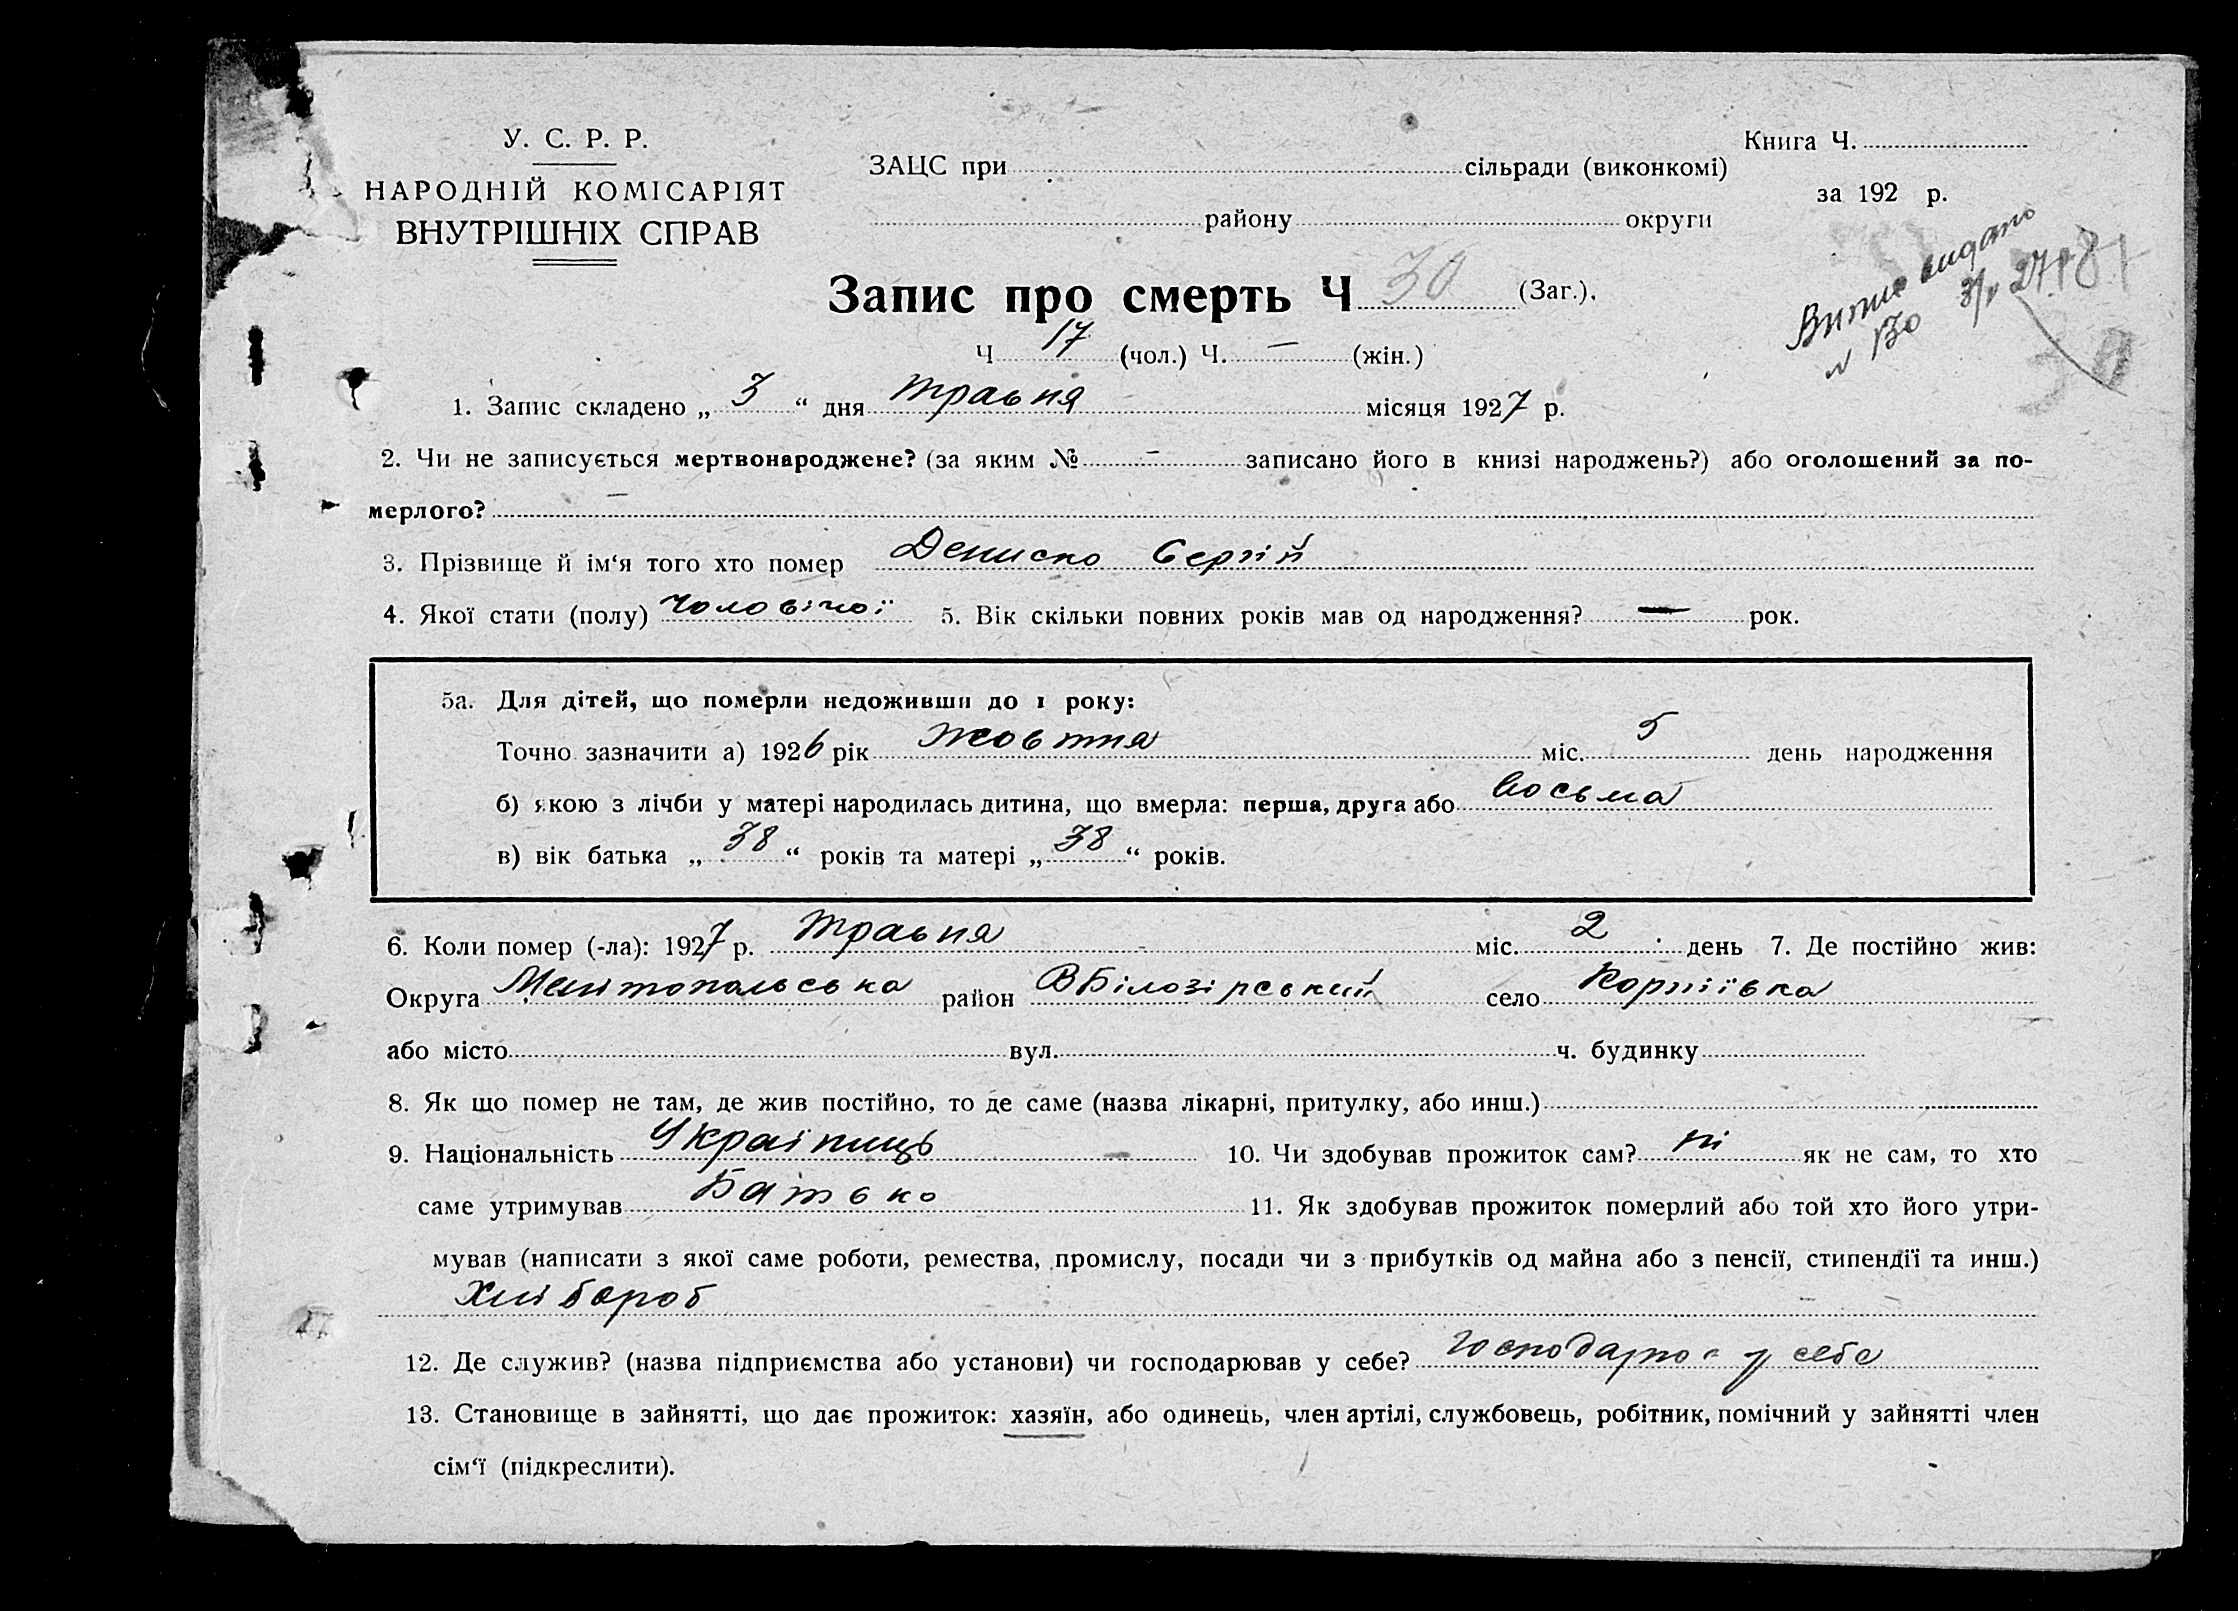 У. С. Р. Р.
НАРОДНІЙ КОМІСАРІЯТ
ВНУТРІШНІХ СПРАВ
ЗАЦС при сільради (виконкомі)
району округи
Книга Ч.
за 192 р.
Випис видано
31/V 27 р
№ 130
Запис про смерть Ч 30 (Заг.).
Ч 17 (чол.) Ч. — (жін.)
1. Запис складено „ 3 “ дня травня місяця 1927 р.
2. Чи не записується мертвонароджене? (за яким № — записано його в книзі народжень?) або оголошений за по-
мерлого? —
3. Прізвище й ім‘я того хто помер Дениско Сергій
4. Якої стати (полу) Чоловічої 5. Вік скільки повних років мав од народження? — рок.
5а. Для дітей, що померли недоживши до 1 року:
Точно зазначити а) 1926 рік жовтня міс. 5 день народження
б) якою з лічби у матері народилась дитина, що вмерла: перша, друга або восьма
в) вік батька „ 38 “ років та матері „ 38 “ років.
6. Коли помер (-ла): 1927 р. травня міс. 2 день 7. Де постійно жив:
Округа Мелітопольська район ВБілозірський село Корніївка
або місто вул. ч. будинку
8. Як що помер не там, де жив постійно, то де саме (назва лікарні, притулку, або инш.)
9. Національність Українець 10. Чи здобував прожиток сам? ні як не сам, то хто
саме утримував Батько 11. Як здобував прожиток померлий або той хто його утри-
мував (написати з якої саме роботи, ремества, промислу, посади чи з прибутків од майна або з пенсії, стипендії та инш.)
Хлібороб
12. Де служив? (назва підприємства або установи) чи господарював у себе? господарює у себе
13. Становище в зайнятті, що дає прожиток: хазяїн, або одинець, член артілі, службовець, робітник, помічний у зайнятті член
сім‘ї (підкреслити).